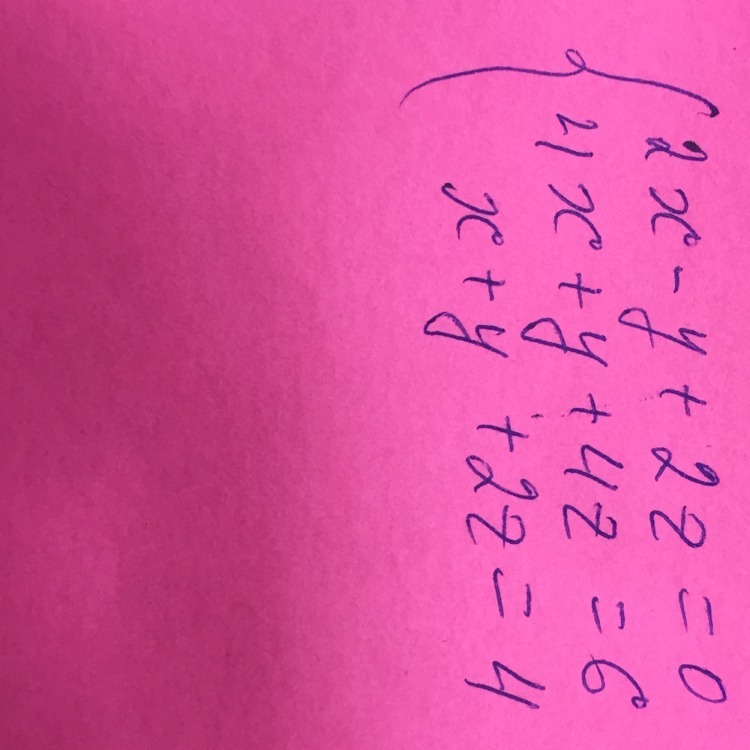 2x - y + 2z = 0
4x + y + 4z = 6
x + y + 2z = 4